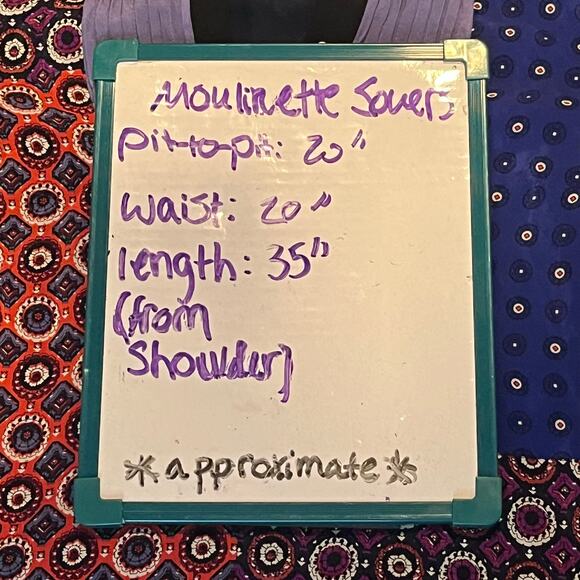 Moulinette Soeurs
pit-to-pit: 20"
waist: 20"
length: 35"
(from
Shoulder)
*approximate*